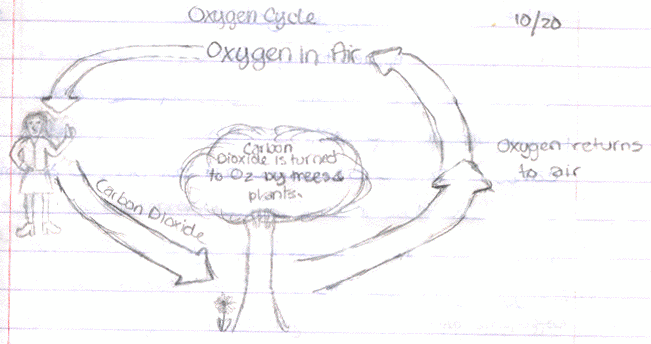 Oxygen Cycle
10/20
Oxygen in Air
Carbon
Dioxide is turned
to O2 by trees &
plants.
Oxygen returns
to air
Carbon Dioxide